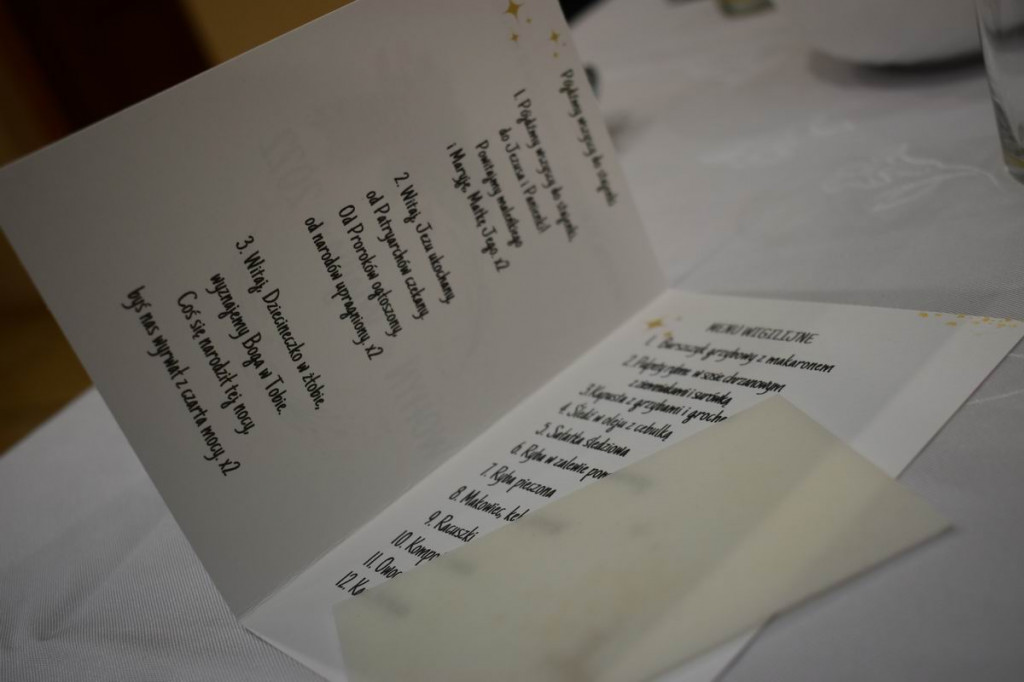 Pójdźmy wszyscy do stajenki
1. Pójdźmy wszyscy do stajenki,
do Jezusa i Panienki!
Powitajmy maleńkiego
i Maryję, Matkę Jego. x2
2. Witaj, Jezu ukochany,
od Patryarchów czekany,
Od Proroków ogłoszony,
od narodów upragniony. x2
3. Witaj, Dziecineczko w żłobie,
wyznajemy Boga w Tobie.
Coś się narodził tej nocy,
byś nas wyrwał z czarta mocy. x2
MENU WIGILIJNE
1. Barszczyk grzybowy z makaronem
2. rybne w sosie chrzanowym
z ziemniakami i surówką
3. Kapusta z grzybami i groch
4. Śledź w oleju z cebulką
5. Sałatka śledziowa
6. Ryba w zalewie pom
7. Ryba pieczona
8. Makowiec, kek
9. Racuszki
10. Kompo
11. Owoc
12. Ko